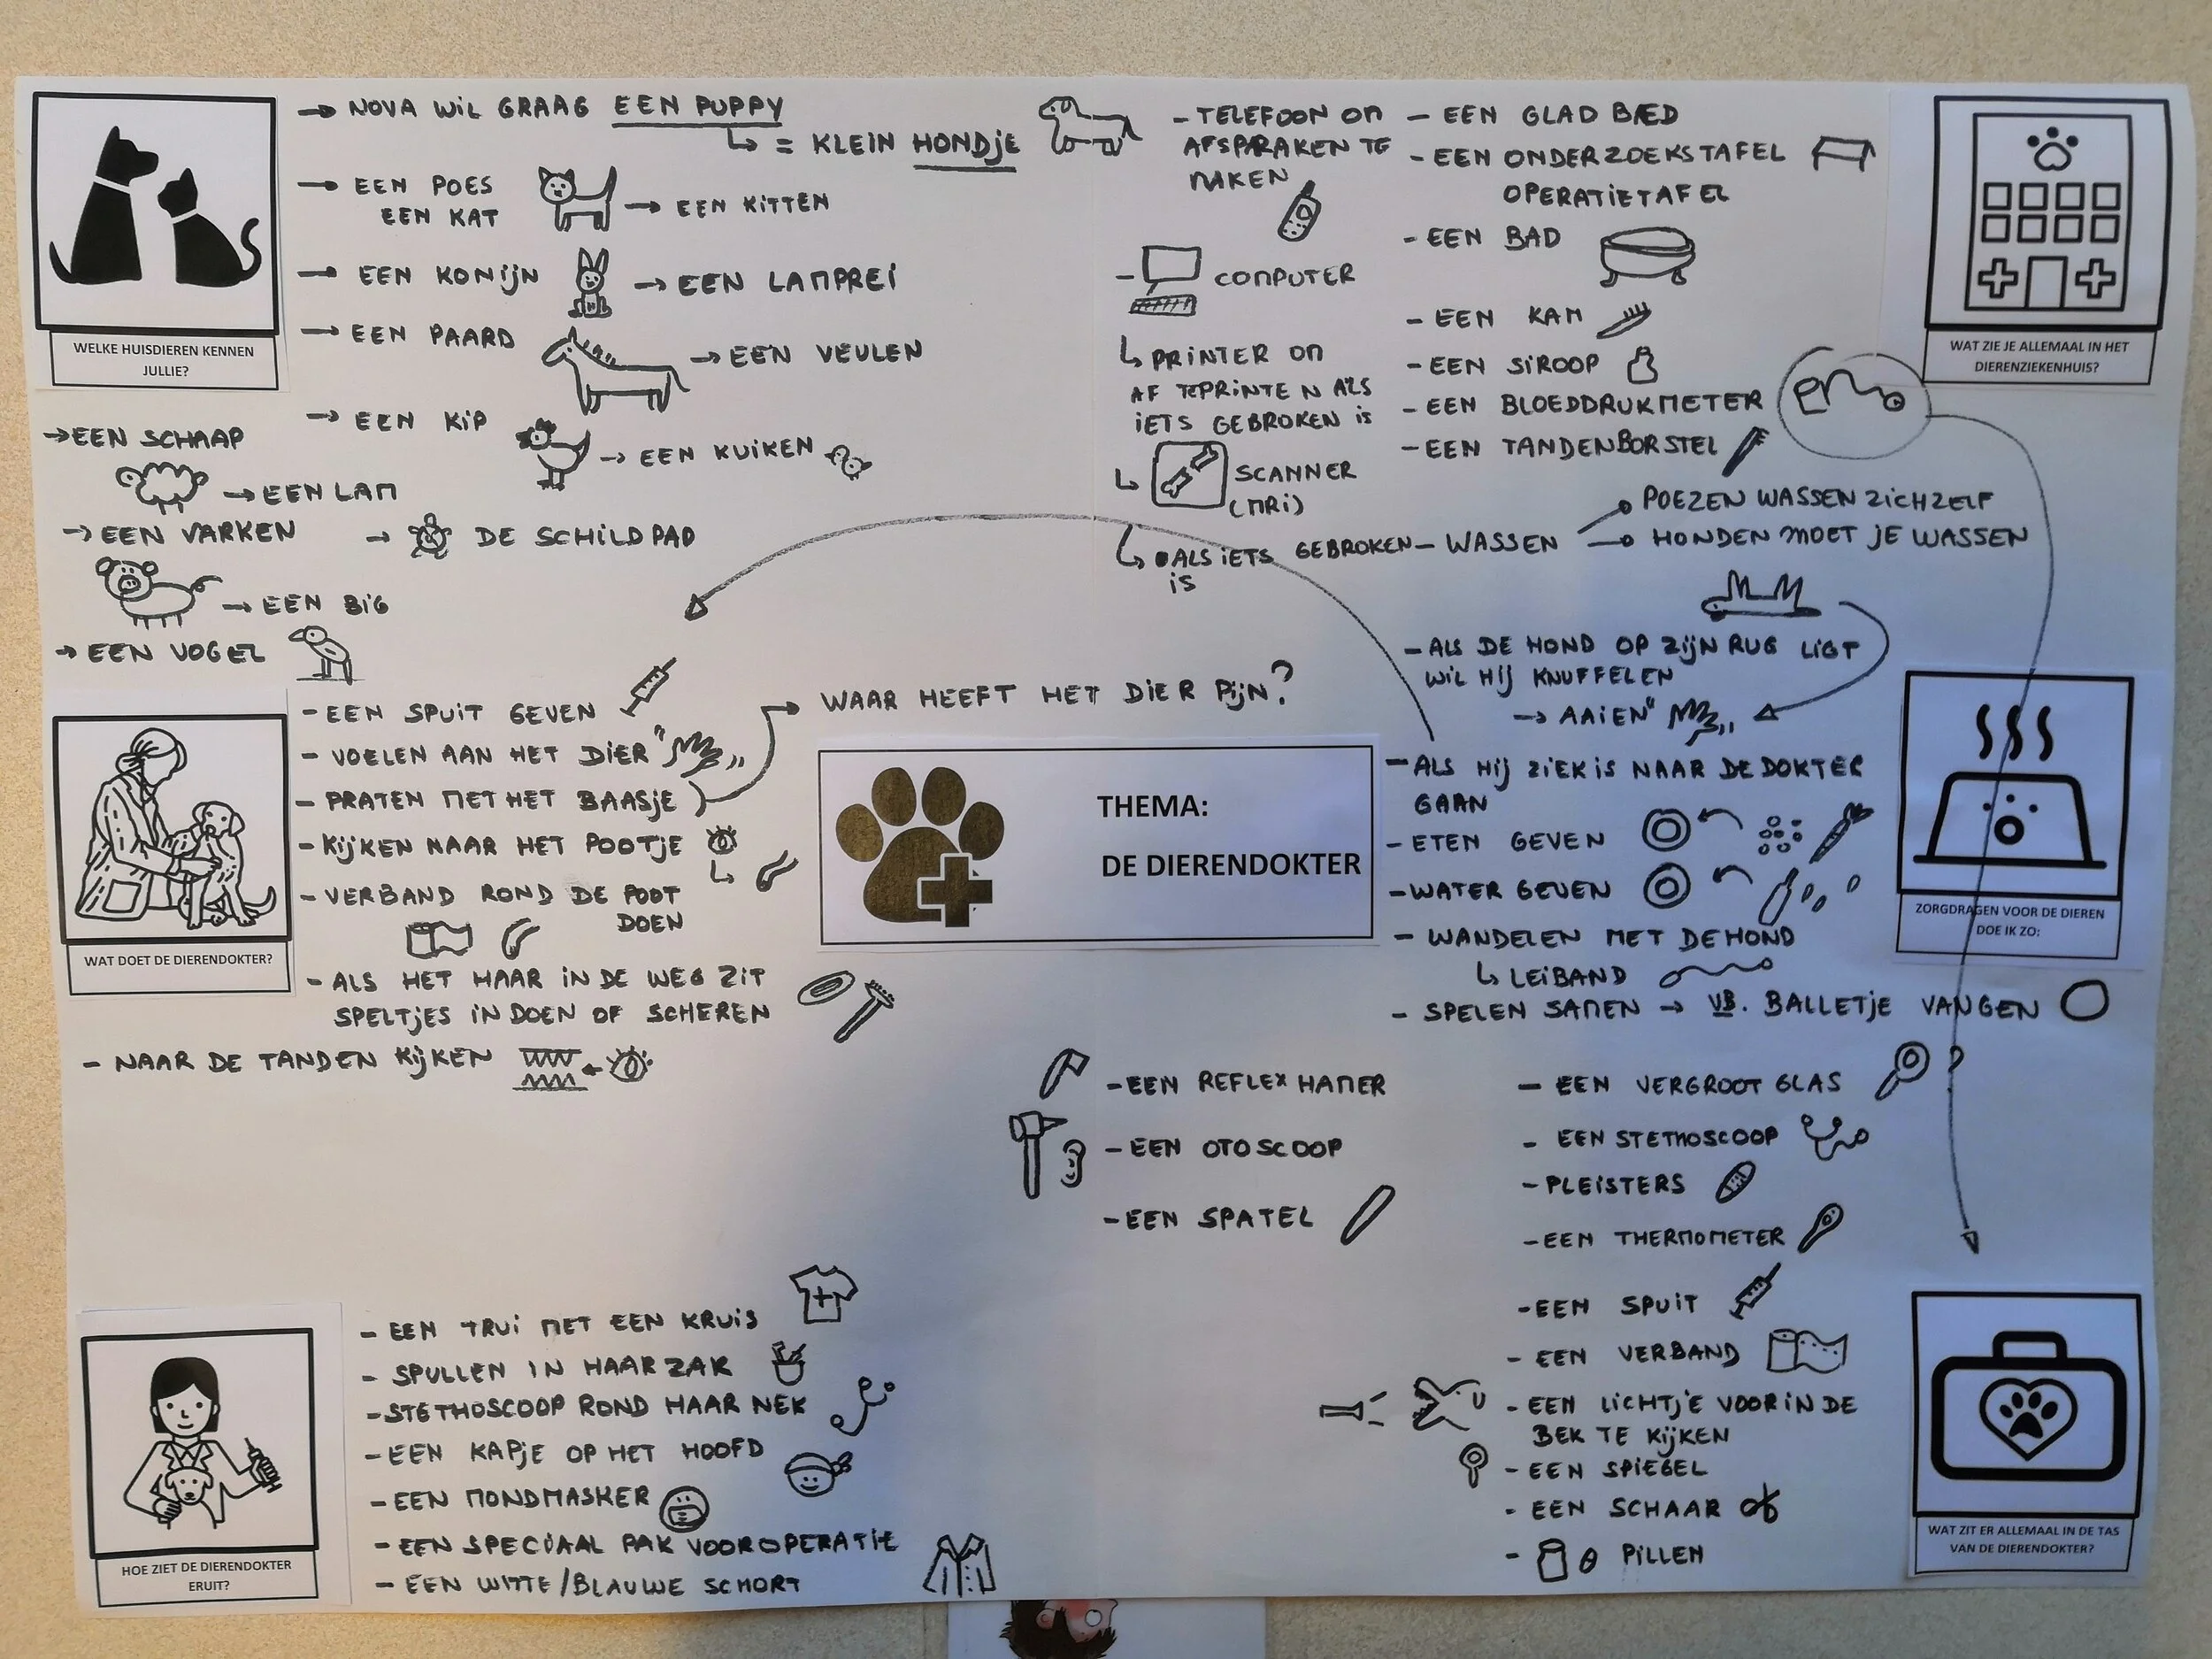 → NOVA WIL GRAAG EEN PUPPY
↳ = KLEIN HONDJE
→ EEN POES
EEN KAT
→ EEN KITTEN
→ EEN KONIJN
→ EEN LAMPREI
→ EEN PAARD
→ EEN VEULEN
→ EEN KIP
→ EEN KUIKEN
WELKE HUISDIEREN KENNEN
JULLIE?
→ EEN SCHAAP
→ EEN LAM
→ EEN VARKEN
→ DE SCHILDPAD
→ EEN BIG
→ EEN VOGEL
- TELEFOON OM
AFSPRAKEN TE
MAKEN
- COMPUTER
↳ PRINTER OM
AF TEPRINTEN ALS
IETS GEBROKEN IS
↳ SCANNER
(MRI)
↳ ALS IETS GEBROKEN
IS
- EEN GLAD BED
- EEN ONDERZOEKSTAFEL
OPERATIETAFEL
- EEN BAD
- EEN KAM
- EEN SIROOP
- EEN BLOEDDRUKMETER
- EEN TANDENBORSTEL
- WASSEN
POEZEN WASSEN ZICHZELF
HONDEN MOET JE WASSEN
WAT ZIE JE ALLEMAAL IN HET
DIERENZIEKENHUIS?
- EEN SPUIT GEVEN
- VOELEN AAN HET DIER
- PRATEN MET HET BAASJE
→ WAAR HEEFT HET DIER PIJN?
- KIJKEN NAAR HET POOTJE
- VERBAND ROND DE POOT
DOEN
- ALS HET HAAR IN DE WEG ZIT
SPELTJES IN DOEN OF SCHEREN
- NAAR DE TANDEN KIJKEN
WAT DOET DE DIERENDOKTER?
THEMA:
DE DIERENDOKTER
- ALS DE HOND OP ZIJN RUG LIGT
WIL HIJ KNUFFELEN
→ AAIEN
- ALS HIJ ZIEK IS NAAR DE DOKTER
GAAN
- ETEN GEVEN
- WATER GEVEN
- WANDELEN MET DE HOND
↳ LEIBAND
- SPELEN SAMEN → VB. BALLETJE VANGEN
ZORGDRAGEN VOOR DE DIEREN
DOE IK ZO:
- EEN REFLEX HAMER
- EEN OTOSCOOP
- EEN SPATEL
- EEN VERGROOT GLAS
- EEN STETHOSCOOP
- PLEISTERS
- EEN THERMOMETER
- EEN SPUIT
- EEN VERBAND
- EEN LICHTJE VOOR IN DE
BEK TE KIJKEN
- EEN SPIEGEL
- EEN SCHAAR
- PILLEN
WAT ZIT ER ALLEMAAL IN DE TAS
VAN DE DIERENDOKTER?
- EEN TRUI MET EEN KRUIS
- SPULLEN IN HAAR ZAK
- STETHOSCOOP ROND HAAR NEK
- EEN KAPJE OP HET HOOFD
- EEN MONDMASKER
- EEN SPECIAAL PAK VOOR OPERATIE
- EEN WITTE/BLAUWE SCHORT
HOE ZIET DE DIERENDOKTER
ERUIT?